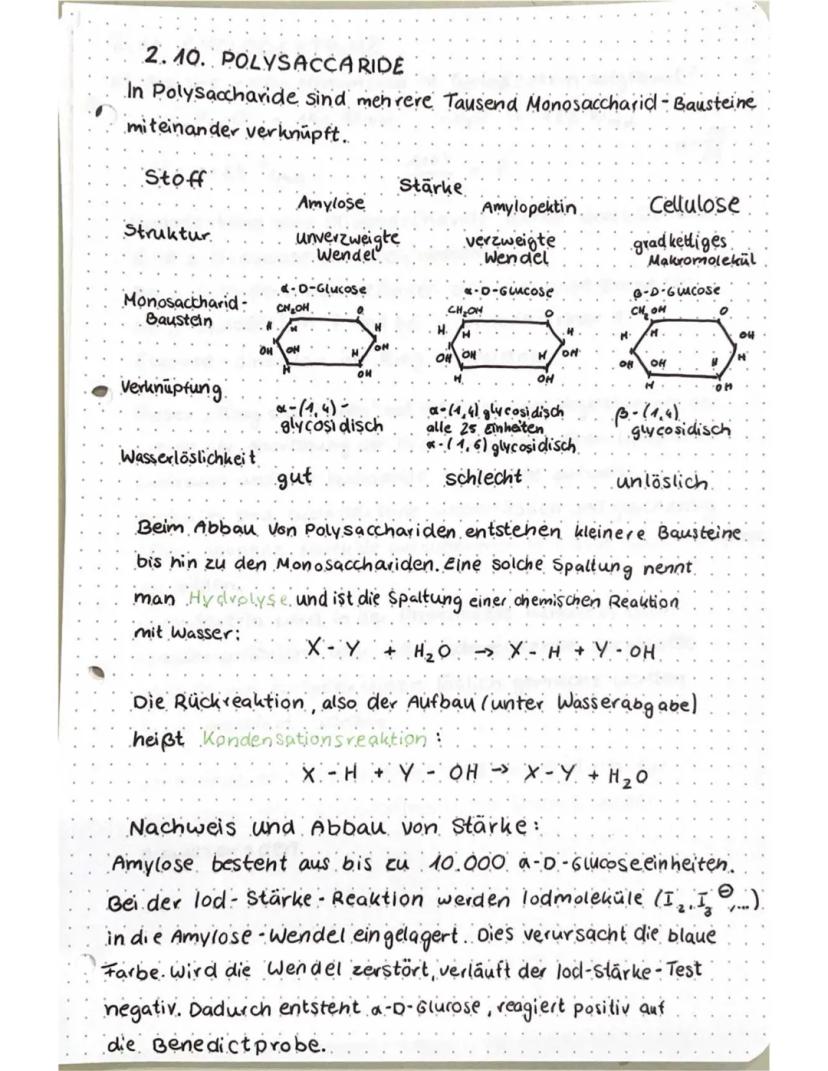 2.10. POLYSACCARIDE
In Polysaccharide sind mehrere Tausend Monosaccharid-Bausteine
miteinander verknüpft.
Stoff
Stärke
Amylose Amylopektin Cellulose
Struktur unverzweigte verzweigte gradkettiges
Wendel Wendel Makromolekül
α-D-Glucose α-D-Glucose β-D-Glucose
Monosaccharid-
Baustein
CH₂OH O CH₂OH O CH₂OH O
H H H H H H H OH
OH OH H OH OH OH H OH OH OH H H
H OH H OH H OH
Verknüpfung
α-(1,4)- α-(1,4) glycosidisch β-(1,4)
glycosidisch alle 25 Einheiten glycosidisch
α-(1,6) glycosidisch
Wasserlöslichkeit
gut schlecht unlöslich
Beim Abbau von Polysacchariden entstehen kleinere Bausteine
bis hin zu den Monosacchariden. Eine solche Spaltung nennt
man Hydrolyse und ist die Spaltung einer chemischen Reaktion
mit Wasser:
X-Y + H₂O → X-H + Y-OH
Die Rückreaktion, also der Aufbau (unter Wasserabgabe)
heißt Kondensationsreaktion:
X-H + Y-OH → X-Y + H₂O
Nachweis und Abbau von Stärke:
Amylose besteht aus bis zu 10.000 α-D-Glucoseeinheiten.
Bei der Iod-Stärke-Reaktion werden Iodmoleküle (I₂, I₃⊖,...)
in die Amylose-Wendel eingelagert. Dies verursacht die blaue
Farbe. Wird die Wendel zerstört, verläuft der Iod-Stärke-Test
negativ. Dadurch entsteht α-D-Glucose, reagiert positiv auf
die Benedictprobe.